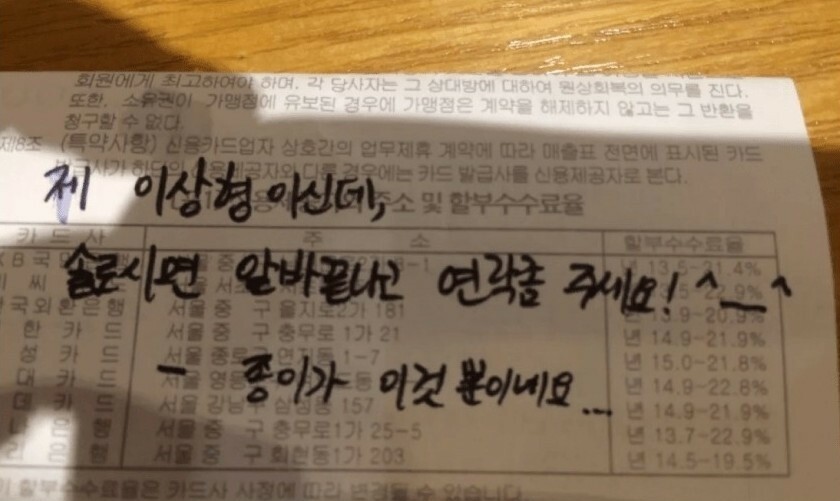 회원에게 최고하여야 하며, 각 당사자는 그 상대방에 대하여 원상회복의 의무를 진다.
또한, 소유권이 가맹점에 유보된 경우에 가맹점은 계약을 해제하지 않고는 그 반환을
청구할 수 없다.
제8조 (특약사항) 신용카드업자 상호간의 업무제휴 계약에 따라 매출표 전면에 표시된 카드
발급사가 하단의 신용제공자와 다를 경우에는 카드 발급사를 신용제공자로 본다.
제 이상형이신데,
주소 및 할부수수료율
카 드 사 주 소 할부수수료율
KB국민 서울 중 년 13.5-21.4%
솔로시면 알바끝나고 연락좀 주세요! ^__^
서울 서초 22.9%
외환은행 서울 중 구 을지로2가 181 20.9%
한 카 드 서울 중 구 충무로 1가 21 년 14.9-21.9%
성 카 드 서울 종로 1-7 년 15.0-21.8%
대 카 드 서울 영등 년 14.9-22.8%
- 종이가 이것 뿐이네요...
데 카 드 서울 강남구 삼성동 157 년 14.9-21.9%
나 은 행 서울 중 구 충무로1가 25-5 년 13.7-22.9%
리 은 행 서울 중 구 회현동1가 203 년 14.5-19.5%
할부수수료율은 카드사 사정에 따라 변경될 수 있습니다.